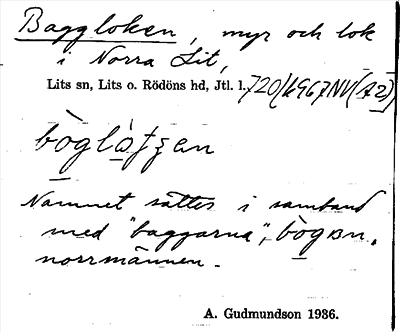 Baggloken, myr och lok
i Norra Lit,
Lits sn, Lits o. Rödöns hd, Jtl. l.
bògl
Namnet sättes i samband
med "baggarna",
norrmännen.
A. Gudmundson 1936.